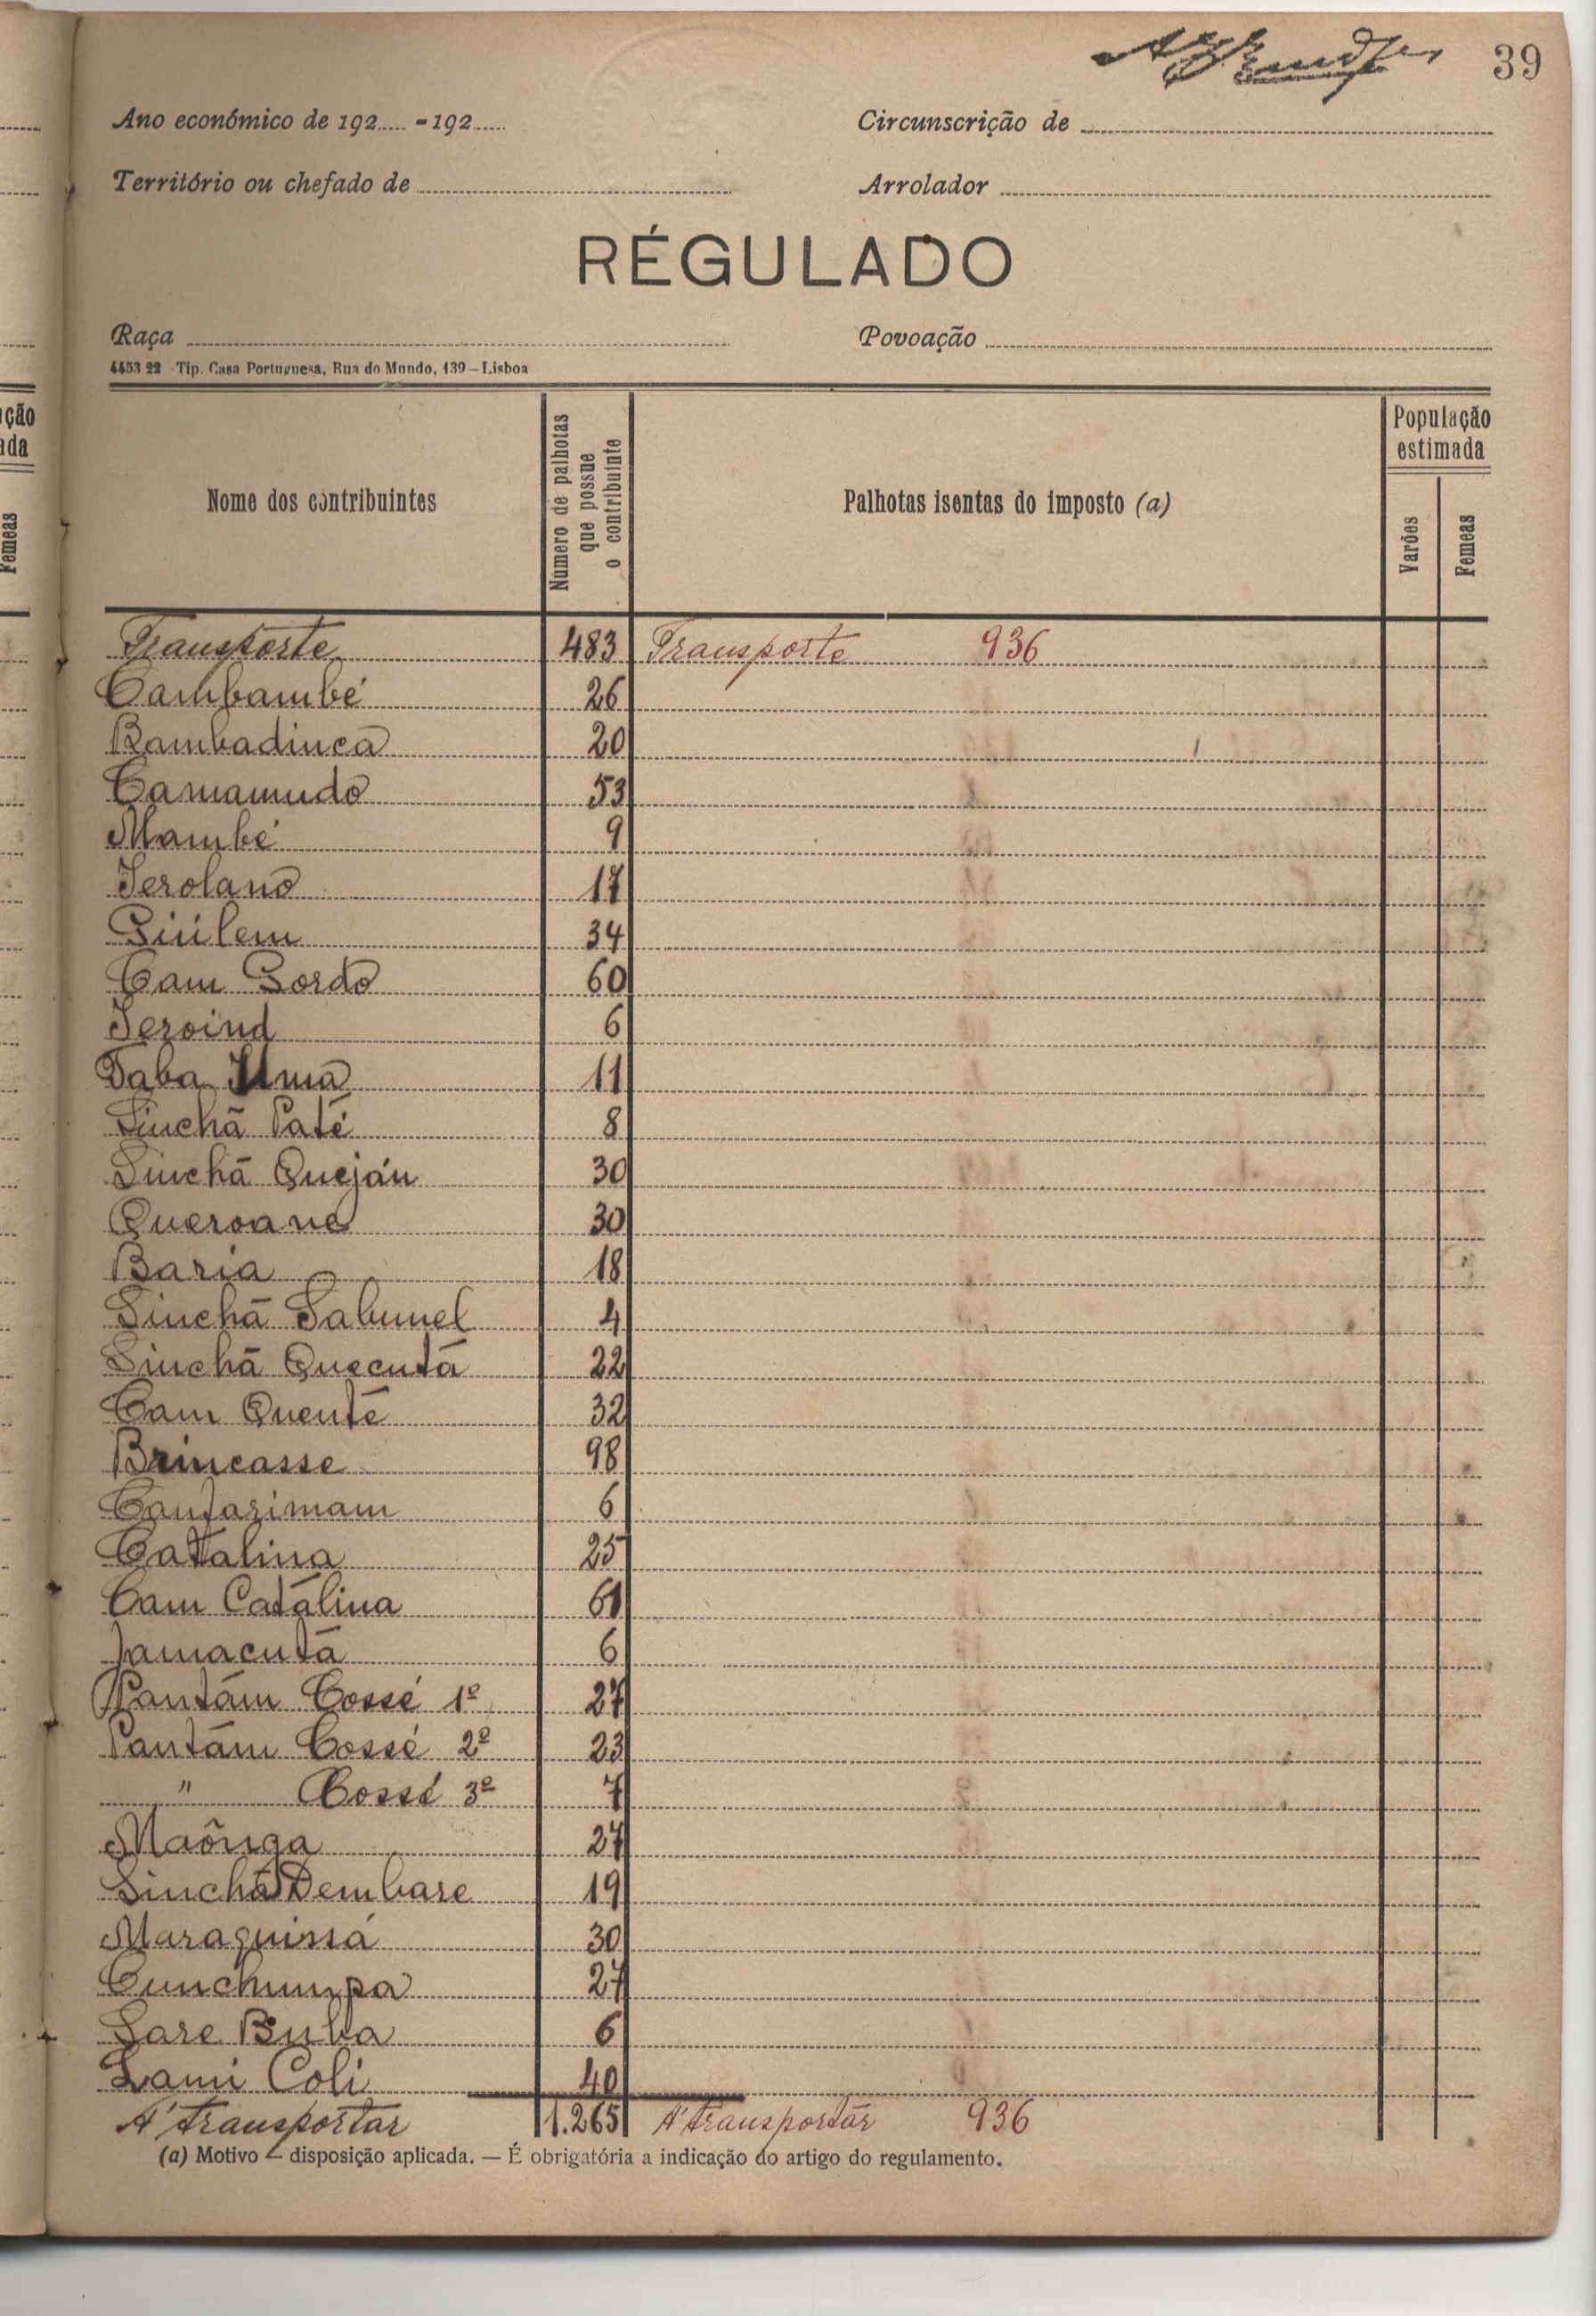 39
Ano económico de 192..... - 192.....
Circunscrição de
Território ou chefado de
Arrolador
RÉGULADO
Raça
Povoação
4453 22 - Tip. Casa Portuguesa, Rua do Mundo, 139 – Lisboa
Nome dos contribuintes
Número de palhotas que possue o contribuinte
Palhotas isentas do imposto (a)
População estimada
Varões
Femeas
Transporte 483 Transporte 936
Cambambé 26
Bambadincã 20
Camamudo 53
Mambé 9
Jerolano 17
Giúlem 34
Cam Gordo 60
Jeroind 6
Taba 11
Sinchã Paté 8
Sinchã Queján 30
Queroane 30
Baria 18
Sinchã Sabunel 4
Sinchã Quecutá 22
Cam Quenté 32
Brincasse 98
Canfarimam 6
Catalina 25
Cam Catálina 61
Jamacutá 6
Pantám Cossé 1º 27
Pantám Cossé 2º 23
" Cossé 3º 7
Maônga 27
Sinchã Dembare 19
Maraquissá 30
Cunchumpa 27
Sare Buba 6
Sami Coli 40
A' transportar 1.265 A' transportar 936
(a) Motivo – disposição aplicada. — É obrigatória a indicação do artigo do regulamento.
ção
ada
Femeas